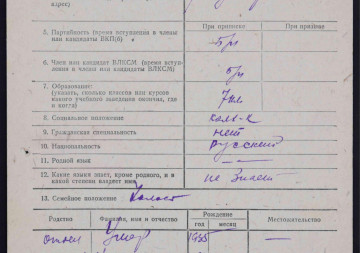 адрес)
При приписке При призыве
5. Партийность (время вступления в члены
или кандидаты ВКП(б)
б/п
6. Член или кандидат ВЛКСМ (время вступ-
ления в члены или кандидаты ВЛКСМ)
б/п
7. Образование:
(указать, сколько классов или курсов
какого учебного заведения окончил, где
и когда)
7 кл
8. Социальное положение
кол-к
9. Гражданская специальность нет
10. Национальность русский
11. Родной язык —
12. Какие языки знает, кроме родного, и в
какой степени владеет ими не знает
13. Семейное положение Холост
Родство Фамилия, имя и отчество Рождение Местожительство
год месяц
отец Умер 1935 — —